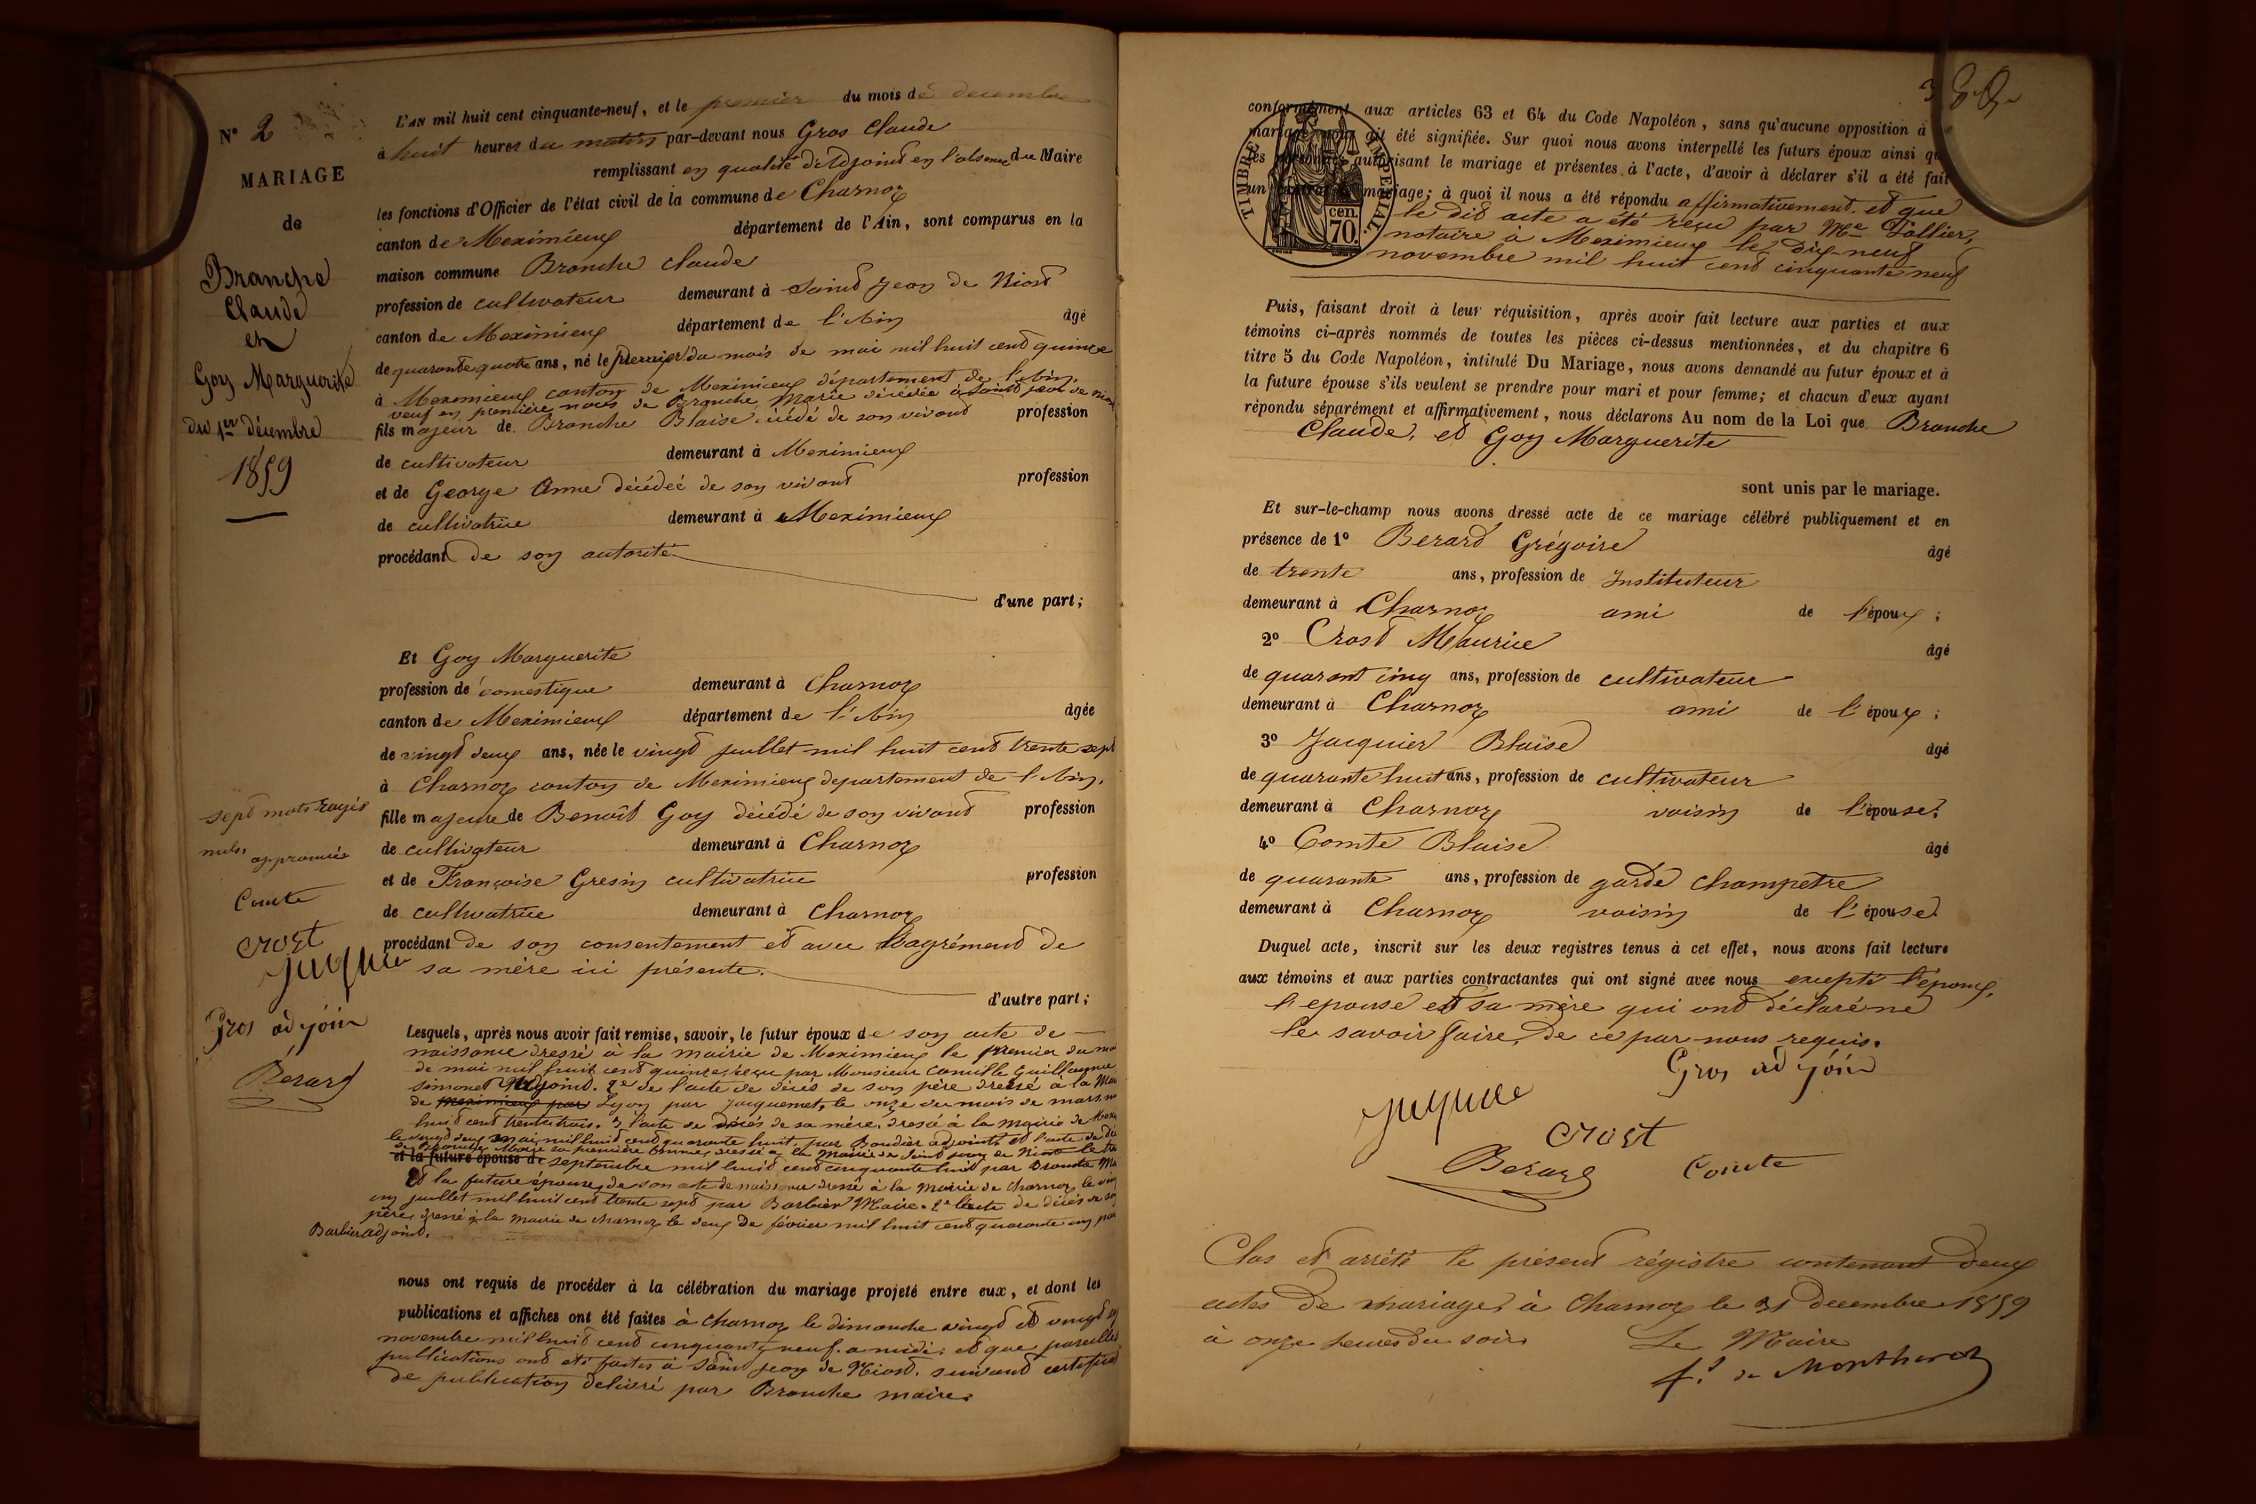 N° 2
MARIAGE
de
Branche
Claude
et
Goy Marguerite
du 1er décembre
1859
L'AN mil huit cent cinquante-neuf, et le premier du mois de decembre
à huit heures du matin par-devant nous Gros Claude
remplissant en qualité d'Adjoint en l'absence du Maire
les fonctions d'Officier de l'état civil de la commune de Charnoz
canton de Meximieux département de l'Ain, sont comparus en la
maison commune Branche Claude
profession de cultivateur demeurant à Saint Jean de Niost
canton de Meximieux département de l'Ain âgé
de quarante quatre ans, né le premier du mois de mai mil huit cent quinze
à Meximieux canton de Meximieux département de l'Ain.
veuf en première noces de Branche Marie décédée à Saint Jean de Niost
fils majeur de Branche Blaise décédé de son vivant profession
de cultivateur demeurant à Meximieux
et de George Anne décédée de son vivant profession
de cultivatrice demeurant à Meximieux
procédant de son autorité
d'une part;
Et Goy Marguerite
profession de domestique demeurant à Charnoz
canton de Meximieux département de l'Ain âgée
de vingt deux ans, née le vingt juillet mil huit cent trente sept
à Charnoz canton de Meximieux departement de l'Ain.
fille majeure de Benoît Goy décédé de son vivant profession
de cultivateur demeurant à Charnoz
et de Françoise Gresin cultivatrice profession
de cultivatrice demeurant à Charnoz
procédant de son consentement et avec l'agrément de
sa mère ici présente.
d'autre part;
sept mots rayés
nuls.
approuvés
Comte
crost
Jacquier
Gros adjoin
Bérard
Lesquels, après nous avoir fait remise, savoir, le futur époux de son acte de
naissance dressé à la mairie de Meximieux le premier du mo
de mai mil huit cent quinze, reçu par Monsieur Camille Guillaume
Simonet Adjoint. 2e de l'acte de décès de son père dressé à la Mai
de meximieux par Lyon par Jacquemet, le onze du mois de mars m
huit cent trente trois. 3 l'acte de décès de sa mère, dressé à la mairie de Mexi
le vingt deux mai mil huit cent quarante huit, par Boudier adjoint et l'acte de dé
de Branche Marie sa première femme, dressé à la Mairie de Saint Jean de Niost le tre
et la future épouse de septembre mil huit cent cinquante huit par Branche Ma
Et la future épouse, de son acte de naissance dressé à la Mairie de Charnoz le vin
un juillet mil huit cent trente sept par Barbier Maire. 2e l'acte de décès de so
père, dressé à la Mairie de Charnoz le deux de février mil huit cent quarante un par
Barbier adjoint.
nous ont requis de procéder à la célébration du mariage projeté entre eux, et dont les
publications et affiches ont été faites à Charnoz le dimanche vingt et vingt
novembre mil huit cent cinquante neuf. a midi; et que pareilles
publications ont été faites à Saint Jean de Niost. suivant certificat
de publication délivré par Branche maire.
380
conformément aux articles 63 et 64 du Code Napoléon, sans qu'aucune opposition à
mariage nous ait été signifiée. Sur quoi nous avons interpellé les futurs époux ainsi que
les personnes autorisant le mariage et présentes à l'acte, d'avoir à déclarer s'il a été fait
un contrat de mariage; à quoi il nous a été répondu affirmativement. et que
TIMBRE IMPERIAL.
70.
cen.
le dit acte a été reçu par Me
notaire à Meximieux le dix-neuf
novembre mil huit cent cinquante neuf
Puis, faisant droit à leur réquisition, après avoir fait lecture aux parties et aux
témoins ci-après nommés de toutes les pièces ci-dessus mentionnées, et du chapitre 6
titre 5 du Code Napoléon, intitulé Du Mariage, nous avons demandé au futur époux et à
la future épouse s'ils veulent se prendre pour mari et pour femme; et chacun d'eux ayant
répondu séparément et affirmativement, nous déclarons Au nom de la Loi que Branche
Claude, et Goy Marguerite
sont unis par le mariage.
Et sur-le-champ nous avons dressé acte de ce mariage célébré publiquement et en
présence de 1° Berard Grégoire âgé
de trente ans, profession de Instituteur
demeurant à Charnoz ami de l'époux;
2° Crost Maurice âgé
de quarant cinq ans, profession de cultivateur
demeurant à Charnoz ami de l'époux;
3° Jacquier Blaise âgé
de quarante huit ans, profession de cultivateur
demeurant à Charnoz voisin de l'épouse;
4° Comte Blaise âgé
de quarante ans, profession de garde champetre
demeurant à Charnoz voisin de l'épouse.
Duquel acte, inscrit sur les deux registres tenus à cet effet, nous avons fait lecture
aux témoins et aux parties contractantes qui ont signé avec nous excepté l'époux,
l'epouse et sa mère qui ont déclaré ne
le savoir faire, de ce par nous requis.
Gros adjoin
Jacquier
crost
Berard Comte
Clos et arrêté le présent régistre contenant deux
actes de mariage, à Charnoz le 31 decembre 1859
à onze heures du soir. Le Maire